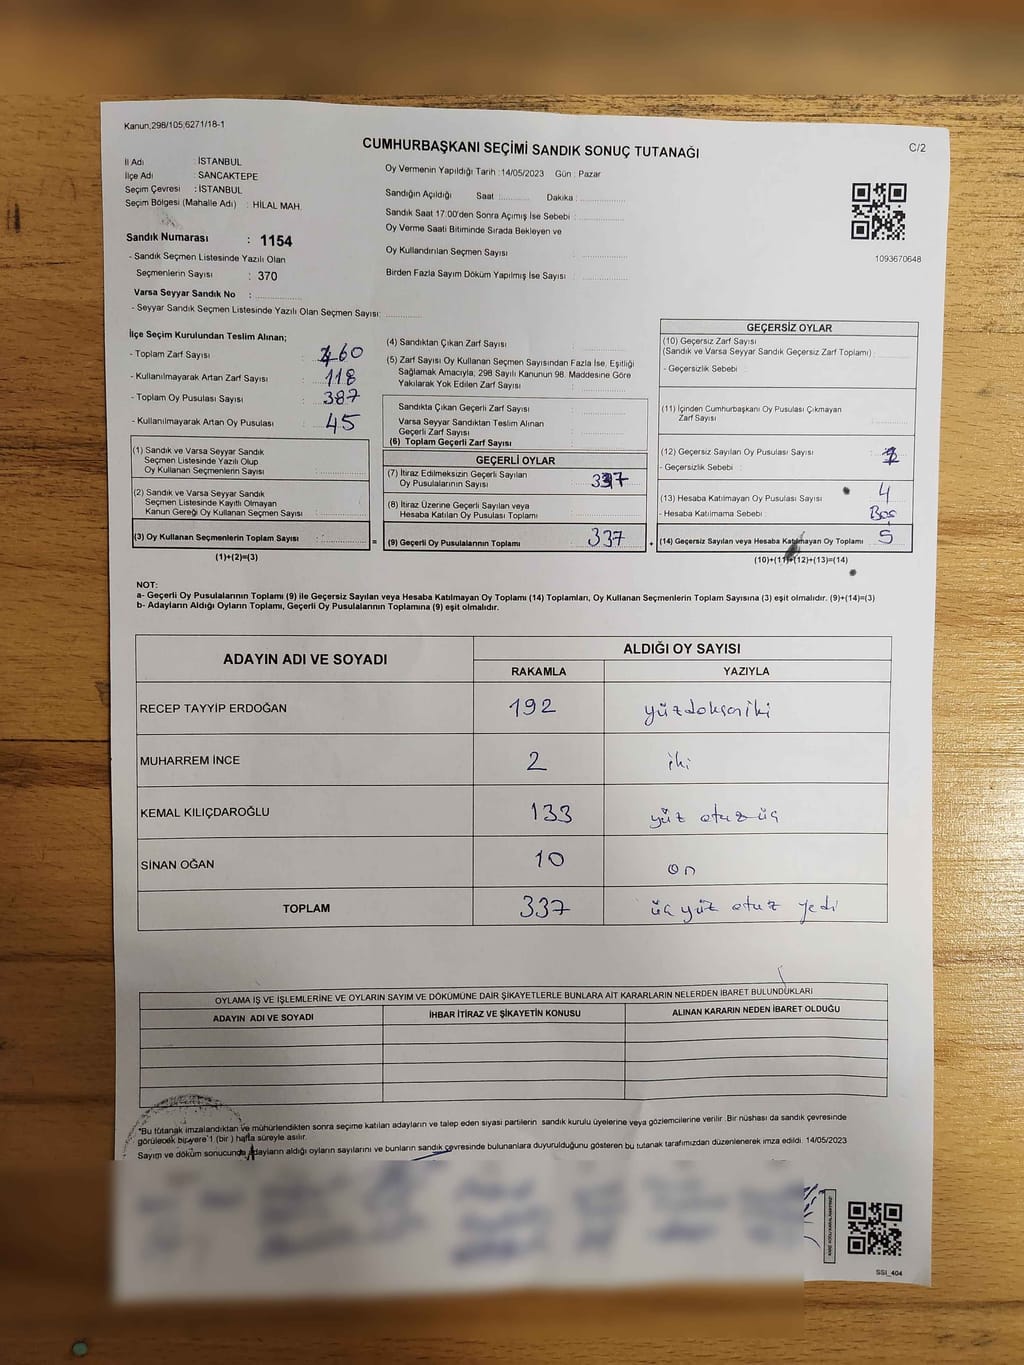 Kanun;298/105;6271/18-1
CUMHURBAŞKANI SEÇİMİ SANDIK SONUÇ TUTANAĞI
C/2
İl Adı : İSTANBUL
İlçe Adı : SANCAKTEPE
Seçim Çevresi : İSTANBUL
Seçim Bölgesi (Mahalle Adı) : HİLAL MAH.
Sandık Numarası : 1154
- Sandık Seçmen Listesinde Yazılı Olan
Seçmenlerin Sayısı : 370
Varsa Seyyar Sandık No :
- Seyyar Sandık Seçmen Listesinde Yazılı Olan Seçmen Sayısı:
Oy Vermenin Yapıldığı Tarih :14/05/2023 Gün : Pazar
Sandığın Açıldığı Saat : Dakika :
Sandık Saat 17:00'den Sonra Açımış İse Sebebi :
Oy Verme Saati Bitiminde Sırada Bekleyen ve
Oy Kullandırılan Seçmen Sayısı :
Birden Fazla Sayım Döküm Yapılmış İse Sayısı :
1093670648
İlçe Seçim Kurulundan Teslim Alınan;
- Toplam Zarf Sayısı : 460
- Kullanılmayarak Artan Zarf Sayısı : 118
- Toplam Oy Pusulası Sayısı : 387
- Kullanılmayarak Artan Oy Pusulası : 45
(1) Sandık ve Varsa Seyyar Sandık
Seçmen Listesinde Yazılı Olup
Oy Kullanan Seçmenlerin Sayısı :
(2) Sandık ve Varsa Seyyar Sandık
Seçmen Listesinde Kayıtlı Olmayan
Kanun Gereği Oy Kullanan Seçmen Sayısı :
(3) Oy Kullanan Seçmenlerin Toplam Sayısı : =
(1)+(2)=(3)
(4) Sandıktan Çıkan Zarf Sayısı :
(5) Zarf Sayısı Oy Kullanan Seçmen Sayısından Fazla İse, Eşitliği
Sağlamak Amacıyla; 298 Sayılı Kanunun 98. Maddesine Göre
Yakılarak Yok Edilen Zarf Sayısı :
Sandıkta Çıkan Geçerli Zarf Sayısı :
Varsa Seyyar Sandıktan Teslim Alınan
Geçerli Zarf Sayısı :
(6) Toplam Geçerli Zarf Sayısı :
GEÇERLİ OYLAR
(7) İtiraz Edilmeksizin Geçerli Sayılan
Oy Pusulalarının Sayısı : 337
(8) İtiraz Üzerine Geçerli Sayılan veya
Hesaba Katılan Oy Pusulası Toplamı :
(9) Geçerli Oy Pusulalarının Toplamı : 337 +
GEÇERSİZ OYLAR
(10) Geçersiz Zarf Sayısı
(Sandık ve Varsa Seyyar Sandık Geçersiz Zarf Toplamı) :
- Geçersizlik Sebebi :
(11) İçinden Cumhurbaşkanı Oy Pusulası Çıkmayan
Zarf Sayısı :
(12) Geçersiz Sayılan Oy Pusulası Sayısı :
- Geçersizlik Sebebi :
(13) Hesaba Katılmayan Oy Pusulası Sayısı : 4
- Hesaba Katılmama Sebebi : Boş
(14) Geçersiz Sayılan veya Hesaba Katılmayan Oy Toplamı : 5
(10)+(11)+(12)+(13)=(14)
NOT:
a- Geçerli Oy Pusulalarının Toplamı (9) ile Geçersiz Sayılan veya Hesaba Katılmayan Oy Toplamı (14) Toplamları, Oy Kullanan Seçmenlerin Toplam Sayısına (3) eşit olmalıdır. (9)+(14)=(3)
b- Adayların Aldığı Oyların Toplamı, Geçerli Oy Pusulalarının Toplamına (9) eşit olmalıdır.
ADAYIN ADI VE SOYADI
ALDIĞI OY SAYISI
RAKAMLA YAZIYLA
RECEP TAYYİP ERDOĞAN 192 yüzdoksaniki
MUHARREM İNCE 2 iki
KEMAL KILIÇDAROĞLU 133 yüz otuz üç
SİNAN OĞAN 10 on
TOPLAM 337 üç yüz otuz yedi
OYLAMA İŞ VE İŞLEMLERİNE VE OYLARIN SAYIM VE DÖKÜMÜNE DAİR ŞİKAYETLERLE BUNLARA AİT KARARLARIN NELERDEN İBARET BULUNDUKLARI
ADAYIN ADI VE SOYADI İHBAR İTİRAZ VE ŞİKAYETİN KONUSU ALINAN KARARIN NEDEN İBARET OLDUĞU
"Bu tutanak imzalandıktan ve mühürlendikten sonra seçime katılan adayların ve talep eden siyasi partilerin sandık kurulu üyelerine veya gözlemcilerine verilir. Bir nüshası da sandık çevresinde
görülecek bir yere 1 (bir ) hafta süreyle asılır.
Sayım ve döküm sonucunda adayların aldığı oyların sayılarını ve bunların sandık çevresinde bulunanlara duyurulduğunu gösteren bu tutanak tarafımızdan düzenlenerek imza edildi. 14/05/2023
SSI_404